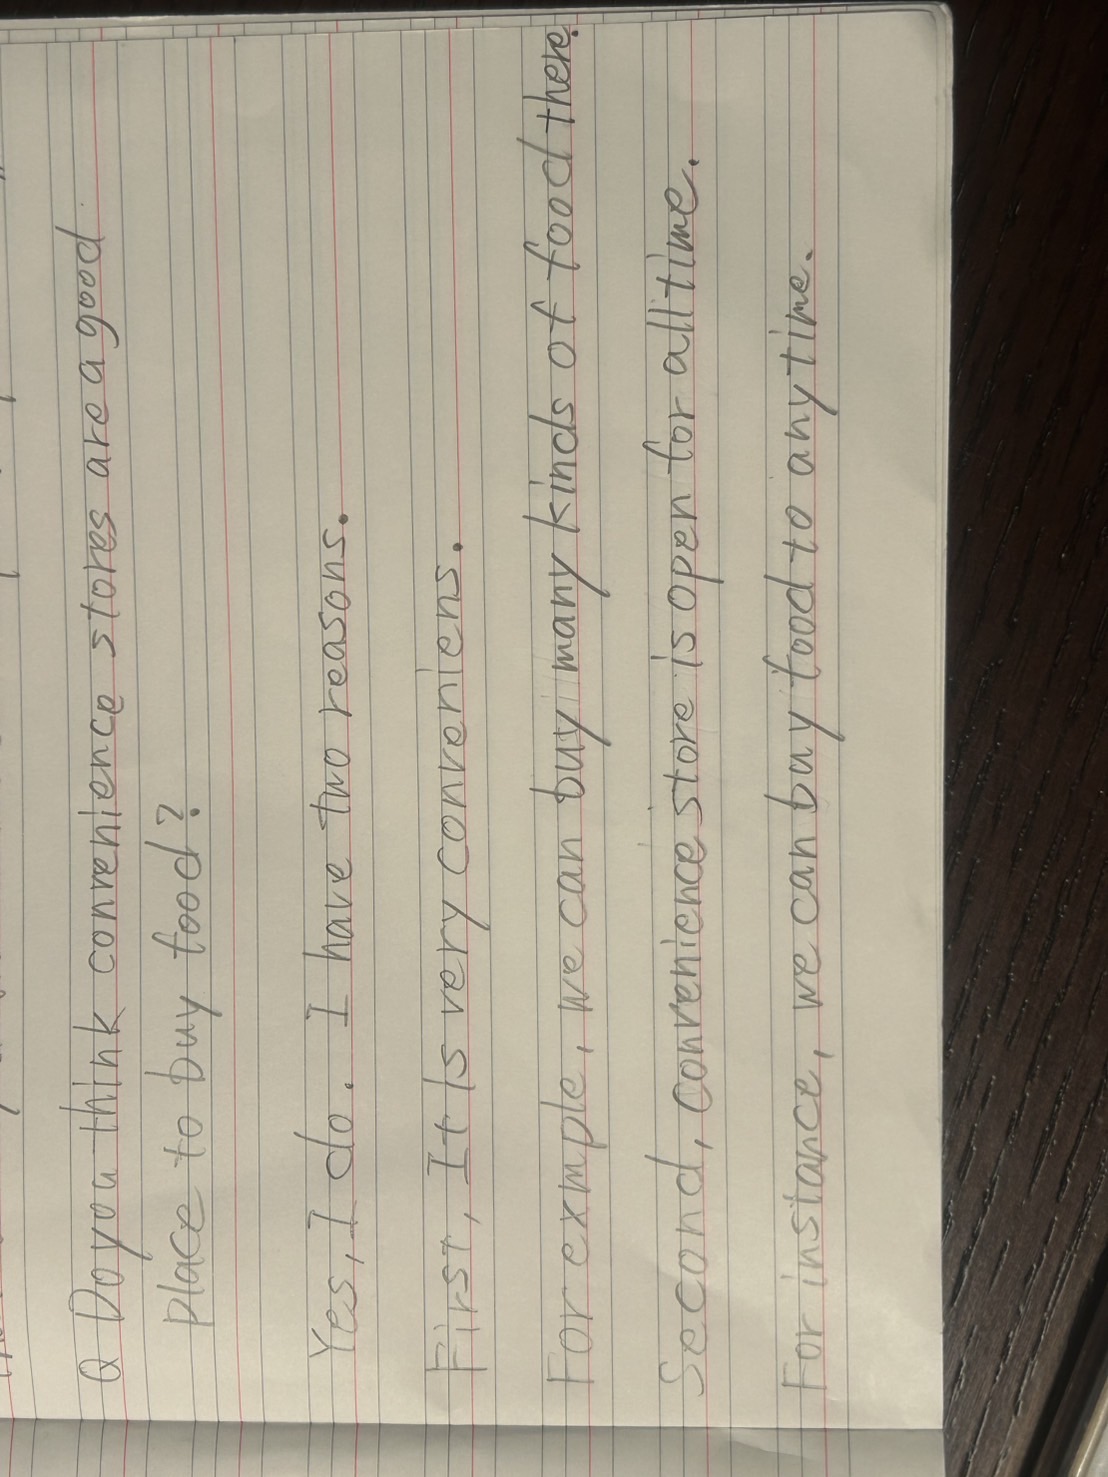 Q Do you think convenience stores are a good
place to buy food?
Yes, I do. I have two reasons.
First, It is very conveniens.
For exmple, we can buy many kinds of food there.
Second, convenience store is open for all time.
For instance, we can buy food to any time.